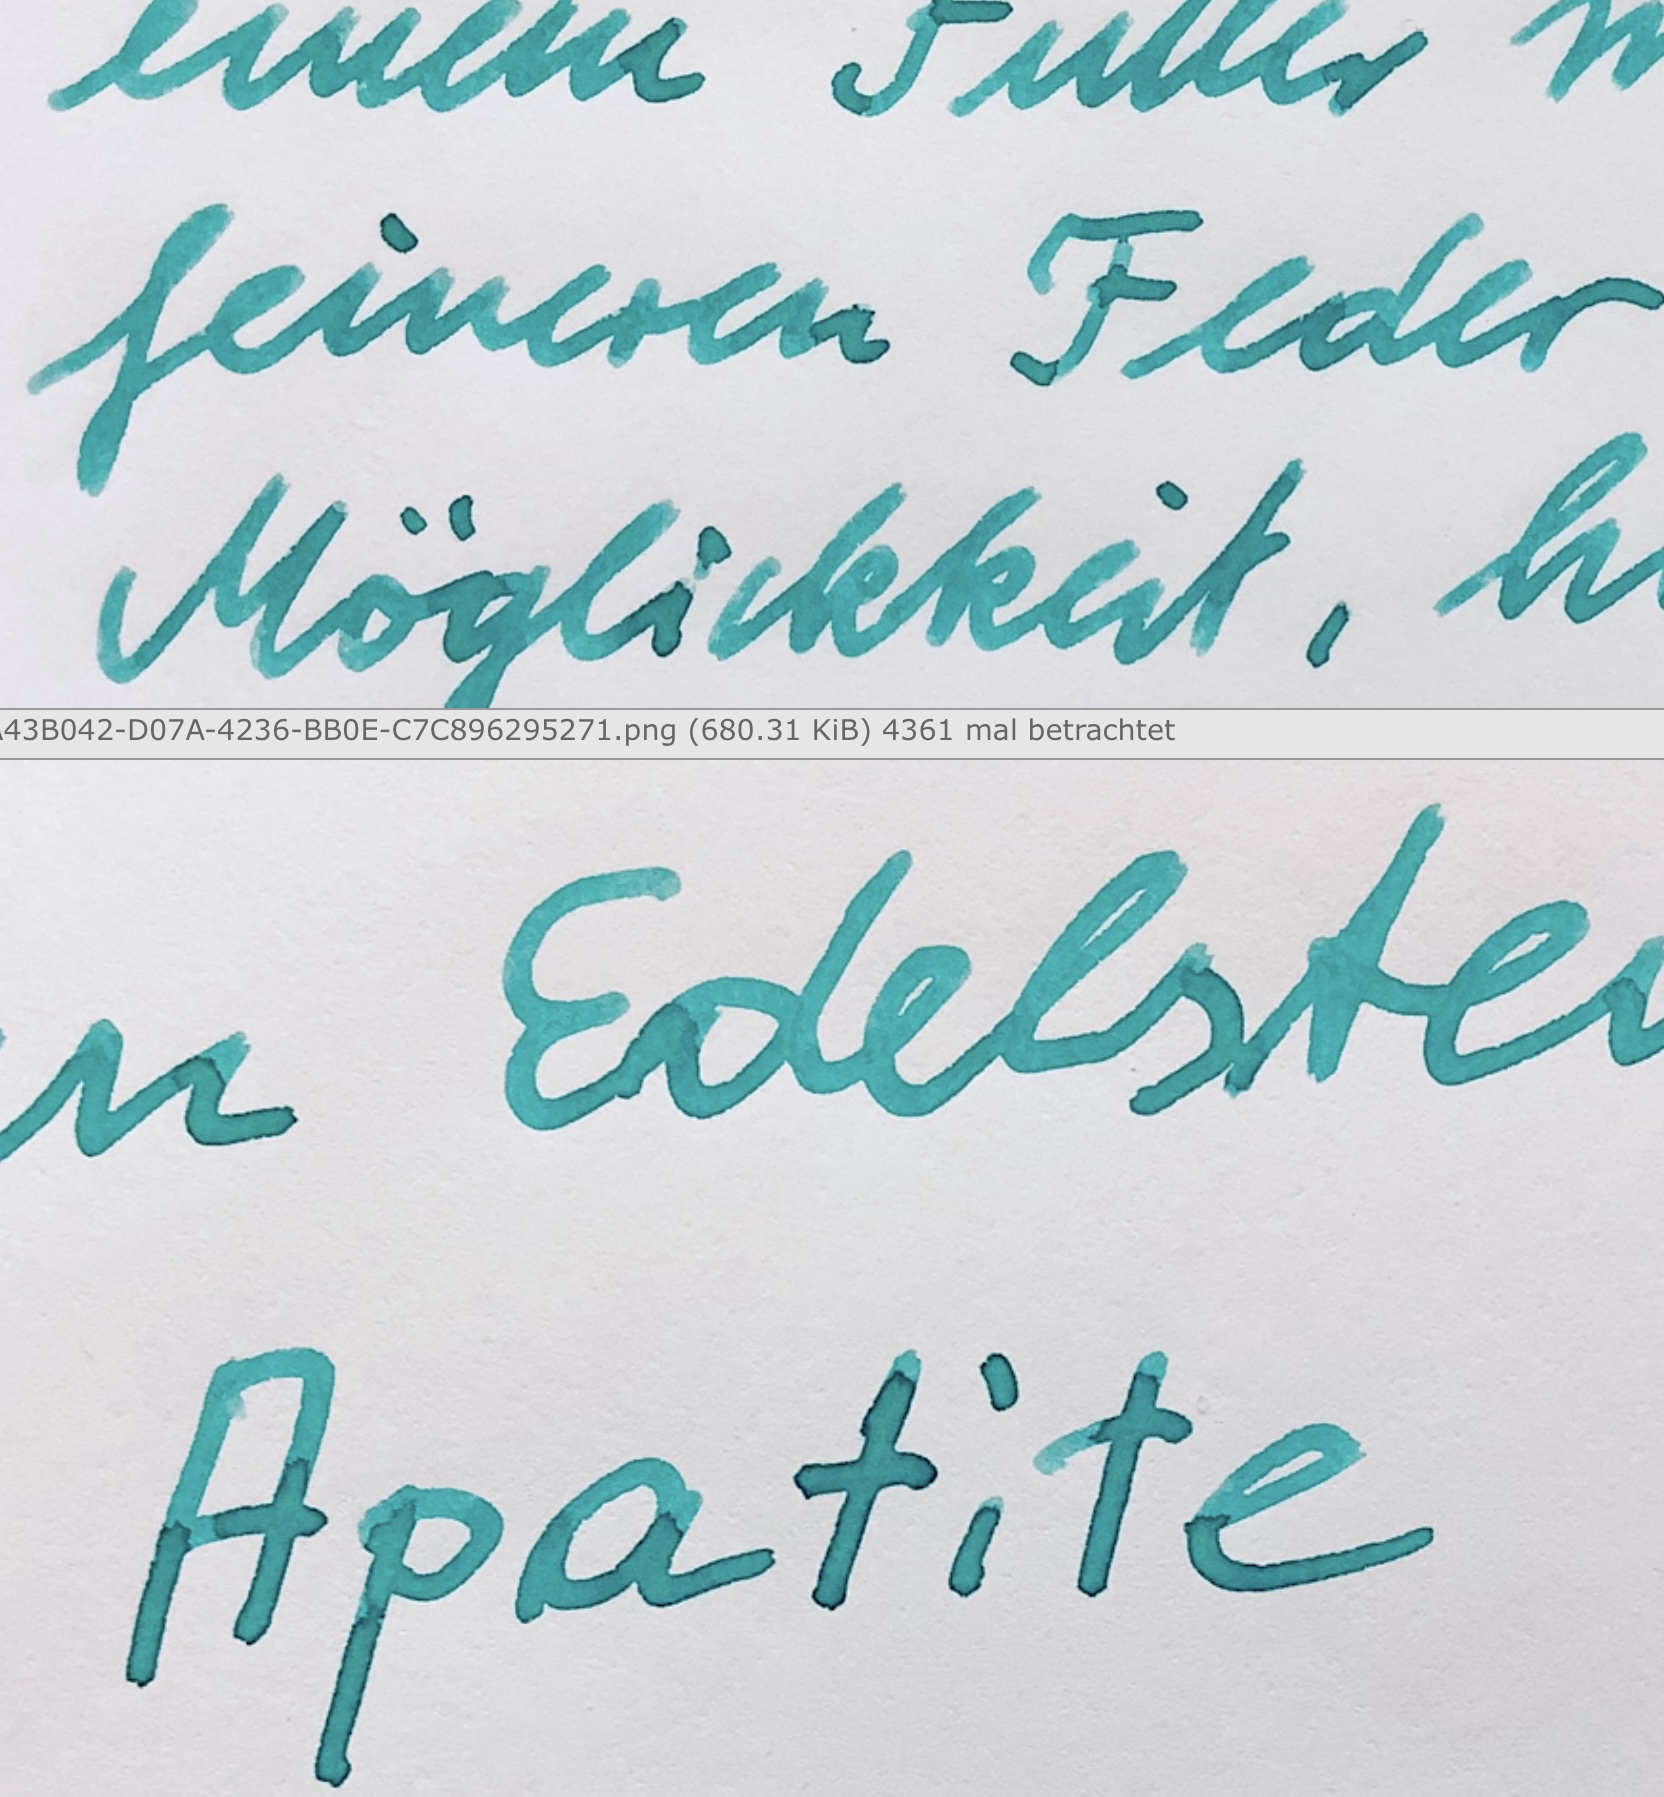 einem Füller m
feineren Feder
Möglichkeit, h
A43B042-D07A-4236-BB0E-C7C896295271.png (680.31 KiB) 4361 mal betrachtet
n Edelstei
Apatite